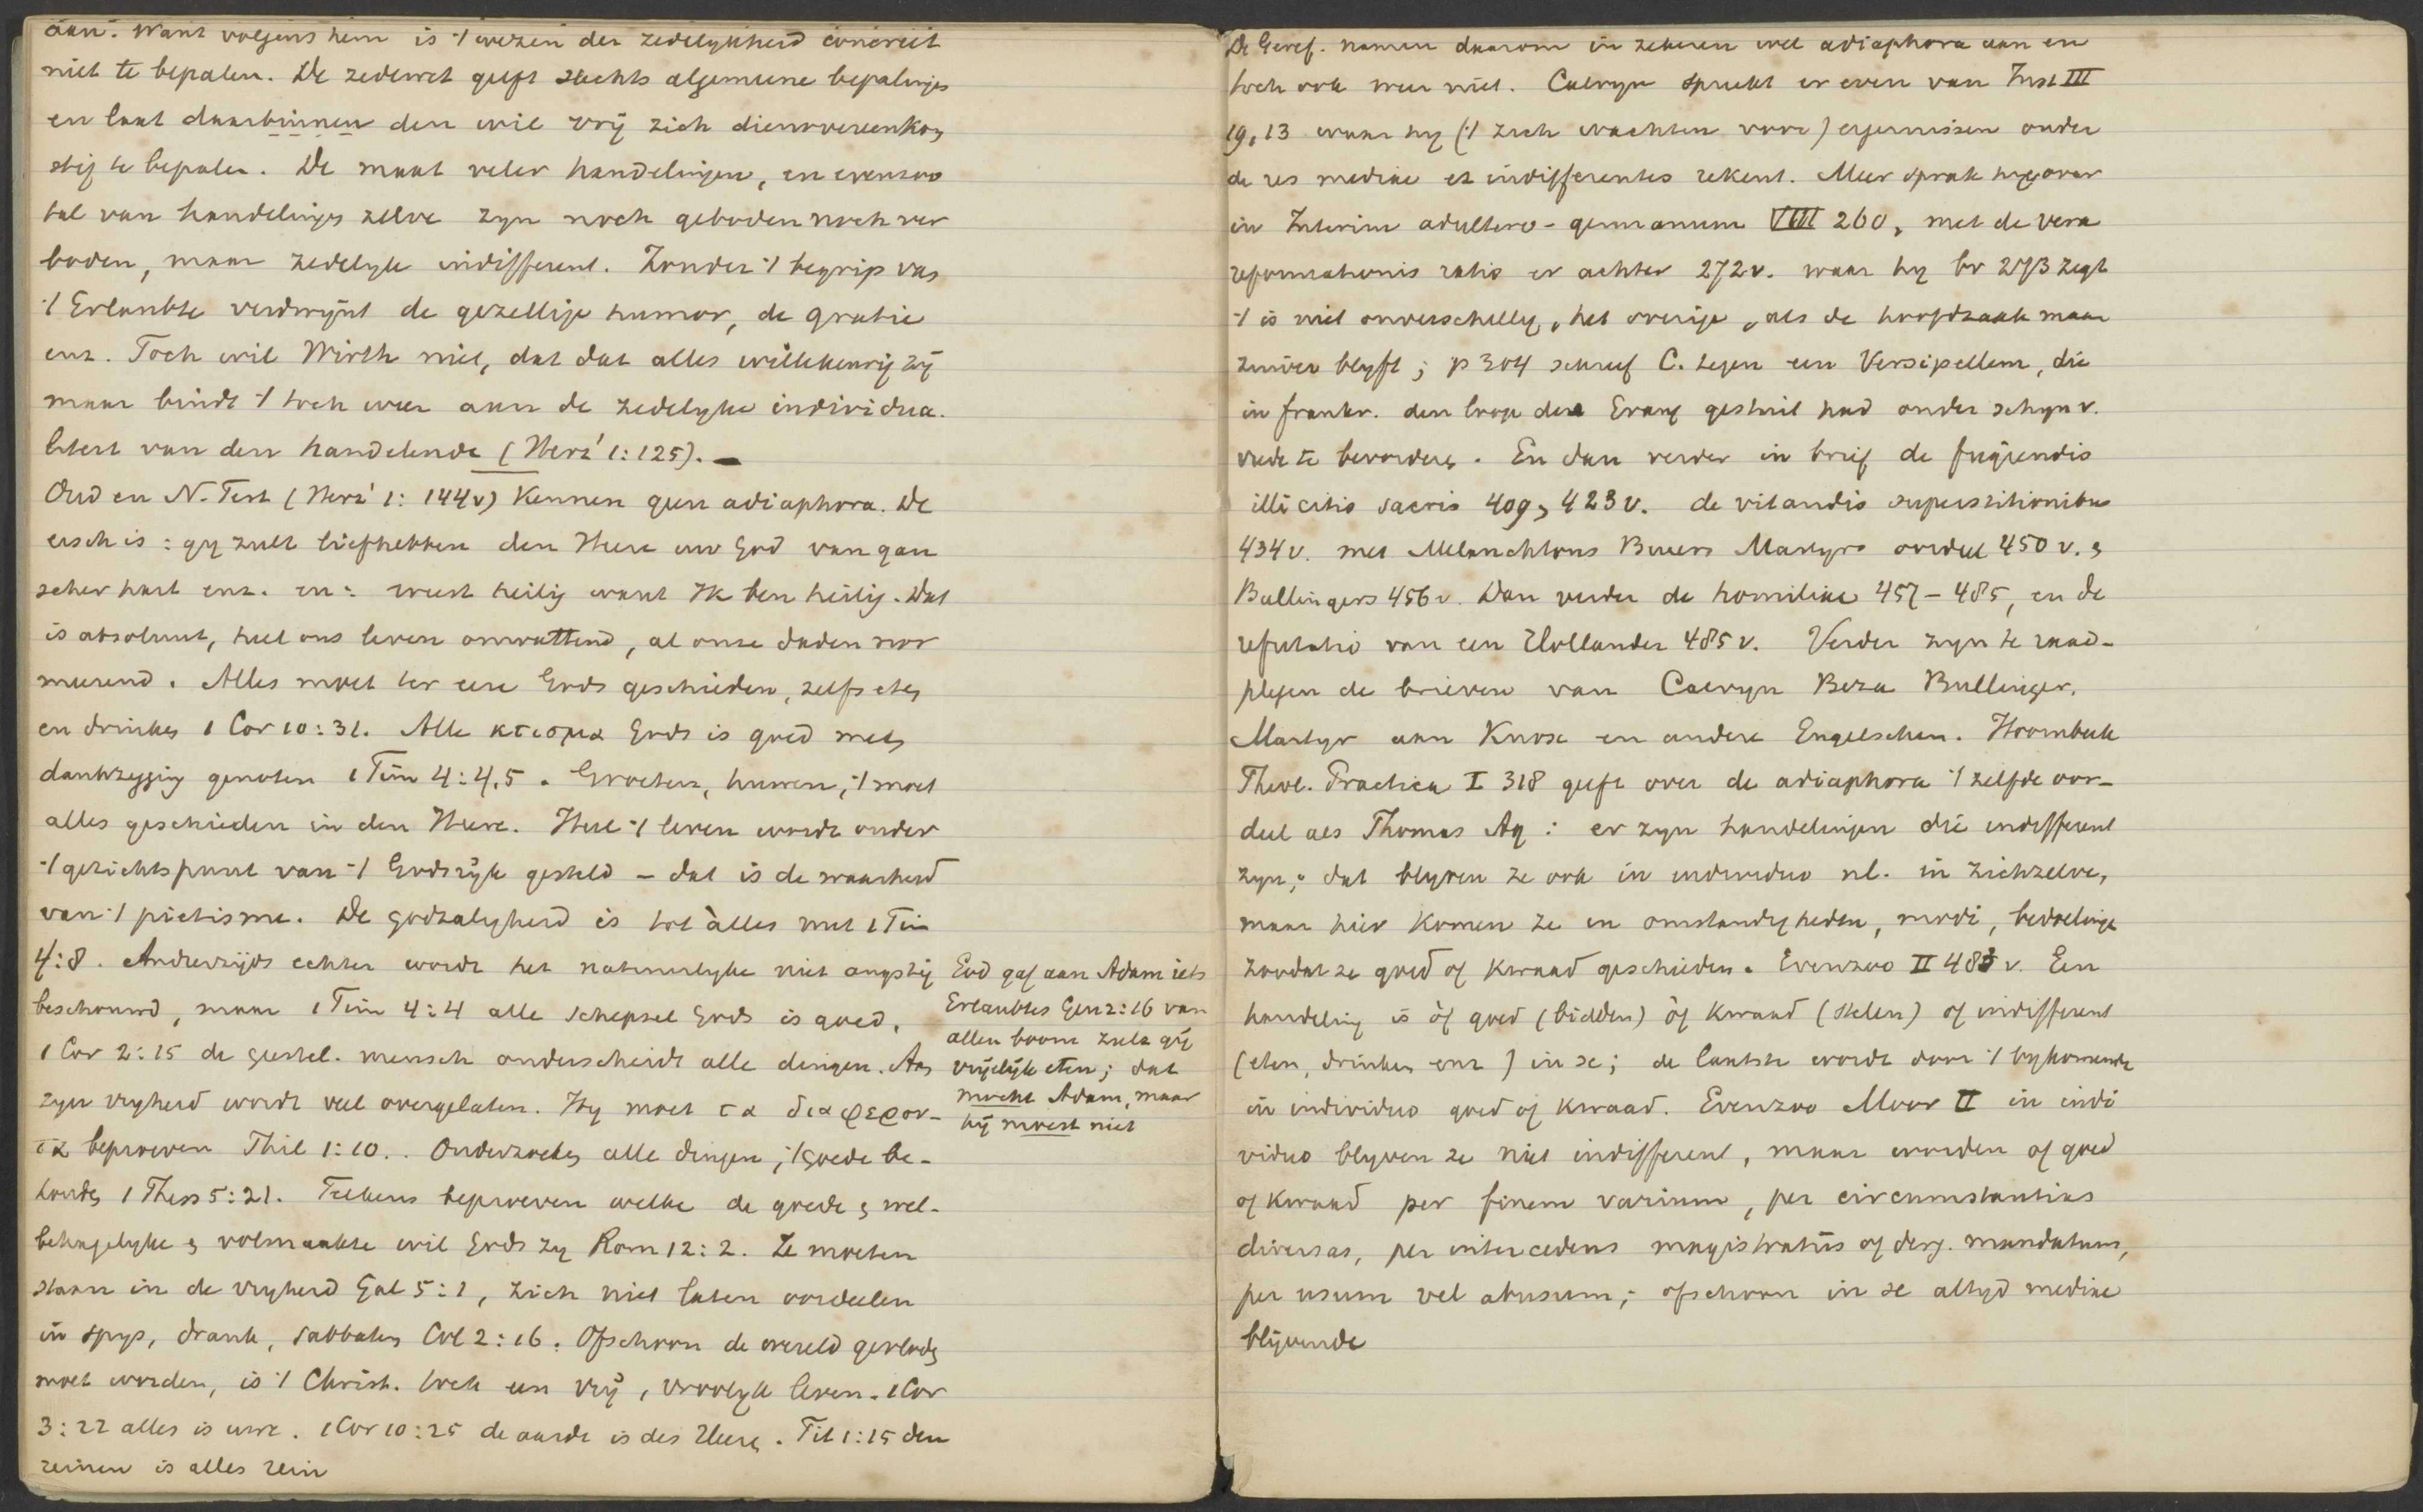 aan. Want volgens hem is 't wezen der zedelykheid concreet
niet te bepalen. De zedewet geeft slechts algemeene bepalingen
en laat daarbinnen den wil vrij zich dienovereenkom
stig te bepalen. De maat veler handelingen, en evenzoo
tal van handelingen zelve zyn noch geboden noch ver
boden, maar zedelyk indifferent. Zonder 't begrip van
't Erlaubte verdwijnt de gezellige humor, de gratie
enz. Toch wil Wirth niet, dat dat alles willekeurig zij
maar bindt 't toch weer aan de zedelyke individua.
liteit van den handelende (Herz' 1:125). —
Oud en N. Test (Herz' 1: 144v) Kennen geen adiaphora. De
eisch is: gy zult liefhebben den Heere uw God van gan
scher hart enz. en: weest heilig want Ik ben heilig. Dat
is absoluut, heel ons leven omvattend, al onze daden nor
meerend. Alles moet ter eere Gods geschieden, zelfs eten
en drinken 1 Cor 10:31. Alle κτισμα Gods is goed met
dankzegging genoten 1 Tim 4:4,5. Groeten, huwen, 't moet
alles geschieden in den Heere. Heel 't leven wordt onder
't gezichtspunt van 't Godsrijk gesteld – dat is de waarheid
van 't pietisme. De godzaligheid is tot àlles nut 1 Tim
4:8. Anderzijds echter wordt het natuurlyke niet angstig
beschouwd, maar 1 Tim 4:4 alle schepsel Gods is goed,
1 Cor 2:15 de geestel. mensch onderscheidt alle dingen. Aan
zyn vryheid wordt veel overgelaten. Hy moet τα διαφερον-
τα beproeven Phil 1:10.. Onderzoekt alle dingen, 't goede be-
houdt 1 Thess 5:21. Telkens beproeven welke de goede & wel-
behagelyke & volmaakte wil Gods zy Rom 12:2. Ze moeten
staan in de vryheid Gal 5:1, zich niet laten oordeelen
in spys, drank, sabbaten Col 2:16. Ofschoon de wereld gevloden
moet worden, is 't Christ. toch een vrij, vroolyk leven. 1 Cor
3:22 alles is uwe. 1 Cor 10:25 de aarde is des Heeren. Tit 1:15 den
reinen is alles rein
God gaf aan Adam iets
Erlaubtes Gen 2:16 van
allen boom zult gij
vrijelijk eten; dat
mocht Adam, maar
hij moest niet
De Geref. namen daarom in zekeren wel adiaphora aan en
toch ook weer niet. Calvyn spreekt er even van Inst III
19,13 waar hy ('t zich wachten voor) ergernissen onder
de res mediae et indifferentes rekent. Meer sprak hy over
in Interim adultero-germanum VIII 260, met de vera
reformationis ratio er achter 272v. waar hy bv 273 zegt
't is niet onverschillig, het overige, als de hoofdzaak maar
zuiver blyft; p 304 schreef C. tegen een Versipellem, die
in frankr. den loop des Evang gestuit had onder schyn v.
vrede te bevorderen. En dan verder in brief de fugiendis
illicitis sacris 409, 423v. de vitandis superstitionibus
434v. met Melanchtons Bucers Martyrs oordeel 450v. &
Bullingers 456v. Dan verder de homiliae 457–485, en de
refutatio van een Hollander 485v. Verder zyn te raad-
plegen de brieven van Calvyn Beza Bullinger.
Martyr aan Knox en andere Engelschen. Hoornbeek
Theol. Practica I 318 geeft over de adiaphora 't zelfde oor-
deel als Thomas Aq: er zyn handelingen die indifferent
zyn; dat blyven ze ook in individuo nl. in zichzelve,
maar hier komen ze in omstandigheden, modi, bedoelingen
zoodat ze goed of kwaad geschieden. Evenzoo II 483 v. Een
handeling is òf goed (bidden) òf kwaad (stelen) of indifferent
(eten, drinken enz) in se; de laatste wordt door 't bykomende
in individuo goed of kwaad. Evenzoo Moor II in indi
viduo blyven ze niet indifferent, maar worden of goed
of kwaad per finem varium, per circumstantias
diversas, per intercedens magistratûs of derg. mandatum,
per usum vel abusum; ofschoon in se altyd mediae
blijvende